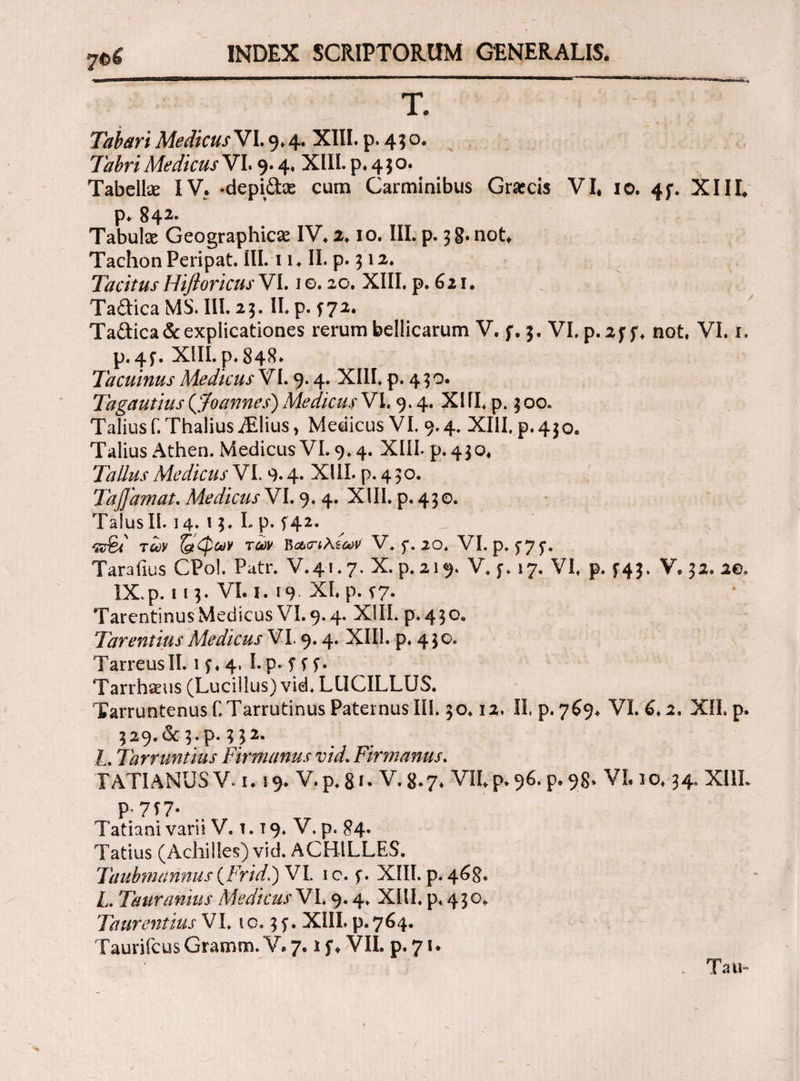 706 INDEX SCRIPTORUM GENERALIS.
T.
Tabari Medicus VI. 9. 4. XIII. p. 430.
Tabri Medicus VI. 9. 4. XIII. p. 430.
Tabellæ IV. depictæ cum Carminibus Græcis VI. 10. 45. XIII.
p. 842.
Tabulæ Geographicæ IV. 2. 10. III. p. 38. not.
Tachon Peripat. III. 11. II. p. 312.
Tacitus Hiſtoricus VI. 10. 20. XIII. p. 621.
Tactica MS. III. 23. II. p. 572.
Tactica & explicationes rerum bellicarum V. 5. 3. VI. p. 255. not. VI. 1.
p. 45. XIII. p. 848.
Tacuinus Medicus VI. 9. 4. XIII. p. 430.
Tagautius (Joannes) Medicus VI. 9. 4. XIII. p. 300.
Talius ſ. Thalius Ælius, Medicus VI. 9. 4. XIII. p. 430.
Talius Athen. Medicus VI. 9. 4. XIII. p. 430.
Tallus Medicus VI. 9. 4. XIII. p. 430.
Taſſamat. Medicus VI. 9. 4. XIII. p. 430.
Talus II. 14. 13. I. p. 542.
περὶ τῶν τάφων τῶν Βασιλέων V. 5. 20. VI. p. 575.
Taraſius CPol. Patr. V. 41. 7. X. p. 219. V. 5. 17. VI. p. 543. V. 32. 20.
IX. p. 113. VI. 1. 19. XI. p. 57.
Tarentinus Medicus VI. 9. 4. XIII. p. 430.
Tarentius Medicus VI. 9. 4. XIII. p. 430.
Tarreus II. 15. 4. I. p. 555.
Tarrhæus (Lucillus) vid. LUCILLUS.
Tarruntenus ſ. Tarrutinus Paternus III. 30. 12. II. p. 769. VI. 6. 2. XII. p.
329. & 3. p. 332.
L. Tarruntius Firmanus vid. Firmanus.
TATIANUS V. 1. 19. V. p. 81. V. 8. 7. VII. p. 96. p. 98. VI. 10. 34. XIII.
p. 757.
Tatiani varii V. 1. 19. V. p. 84.
Tatius (Achilles) vid. ACHILLES.
Taubmannus (Frid.) VI. 10. 5. XIII. p. 468.
L. Tauranius Medicus VI. 9. 4. XIII. p. 430.
Taurentius VI. 10. 35. XIII. p. 764.
Tauriſcus Gramm. V. 7. 15. VII. p. 71.
Tau-